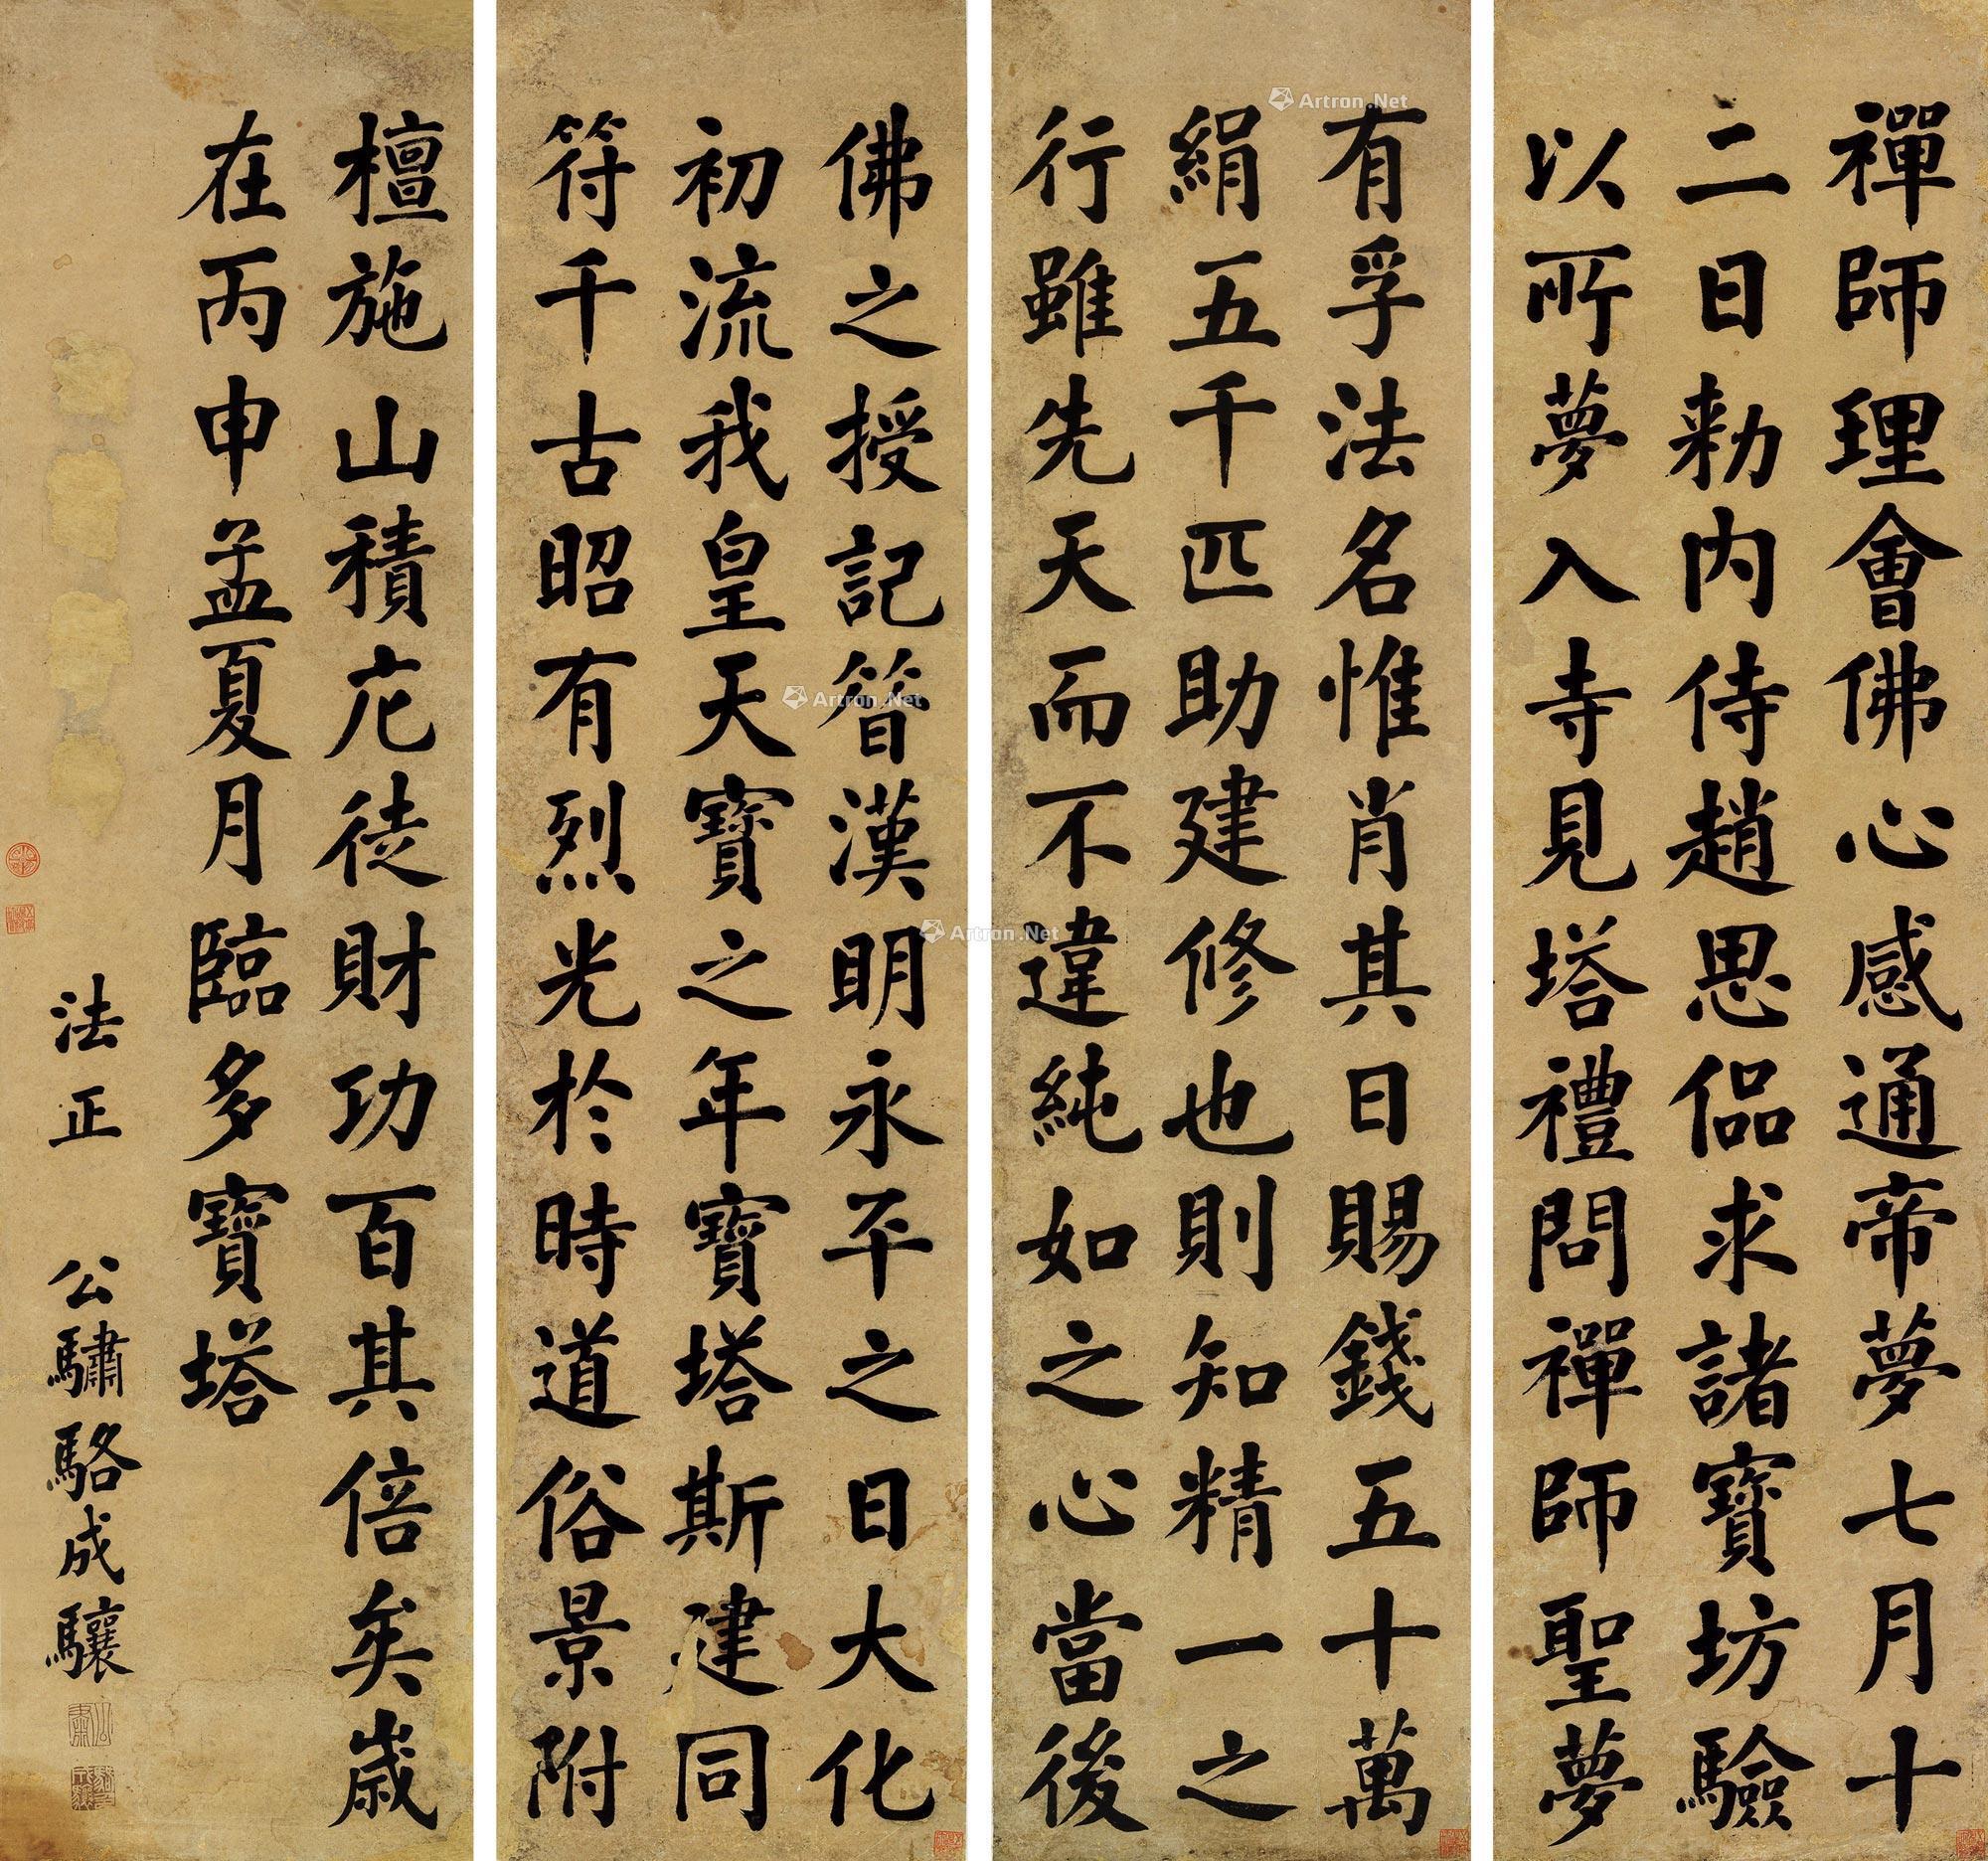 禪師理會佛心感通帝夢七月十
二日勑内侍趙思偘求諸寶坊驗
以所夢入寺見塔禮問禪師聖夢
有孚法名惟肖其日賜錢五十萬
絹五千匹助建修也則知精一之
行雖先天而不違純如之心當後
佛之授記昝漢明永平之日大化
初流我皇天寶之年寶塔斯建同
符千古昭有烈光於時道俗景附
檀施山積庀徒財功百其倍矣歲
在丙申孟夏月臨多寶塔
法正
公驌駱成驤
Artron.Net
Artron.Net
Artron.Net